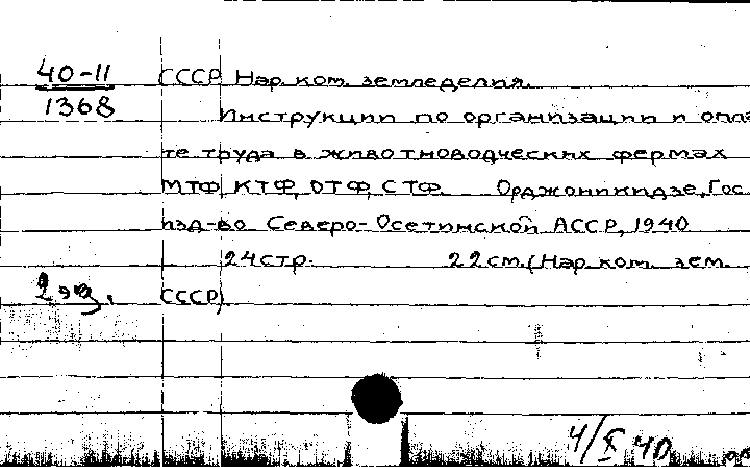 40-11 СССР Нар. ком. земледелия.
1368 Инструкции по организации и опла
те труда в животноводческих фермах
МТФ, КТФ, ОТФ, СТФ. Орджоникидзе, Гос.
изд-во Северо-Осетинской АССР, 1940
24 стр. 22 см. (Нар. ком. зем.
2 экз. СССР)
4/X 40